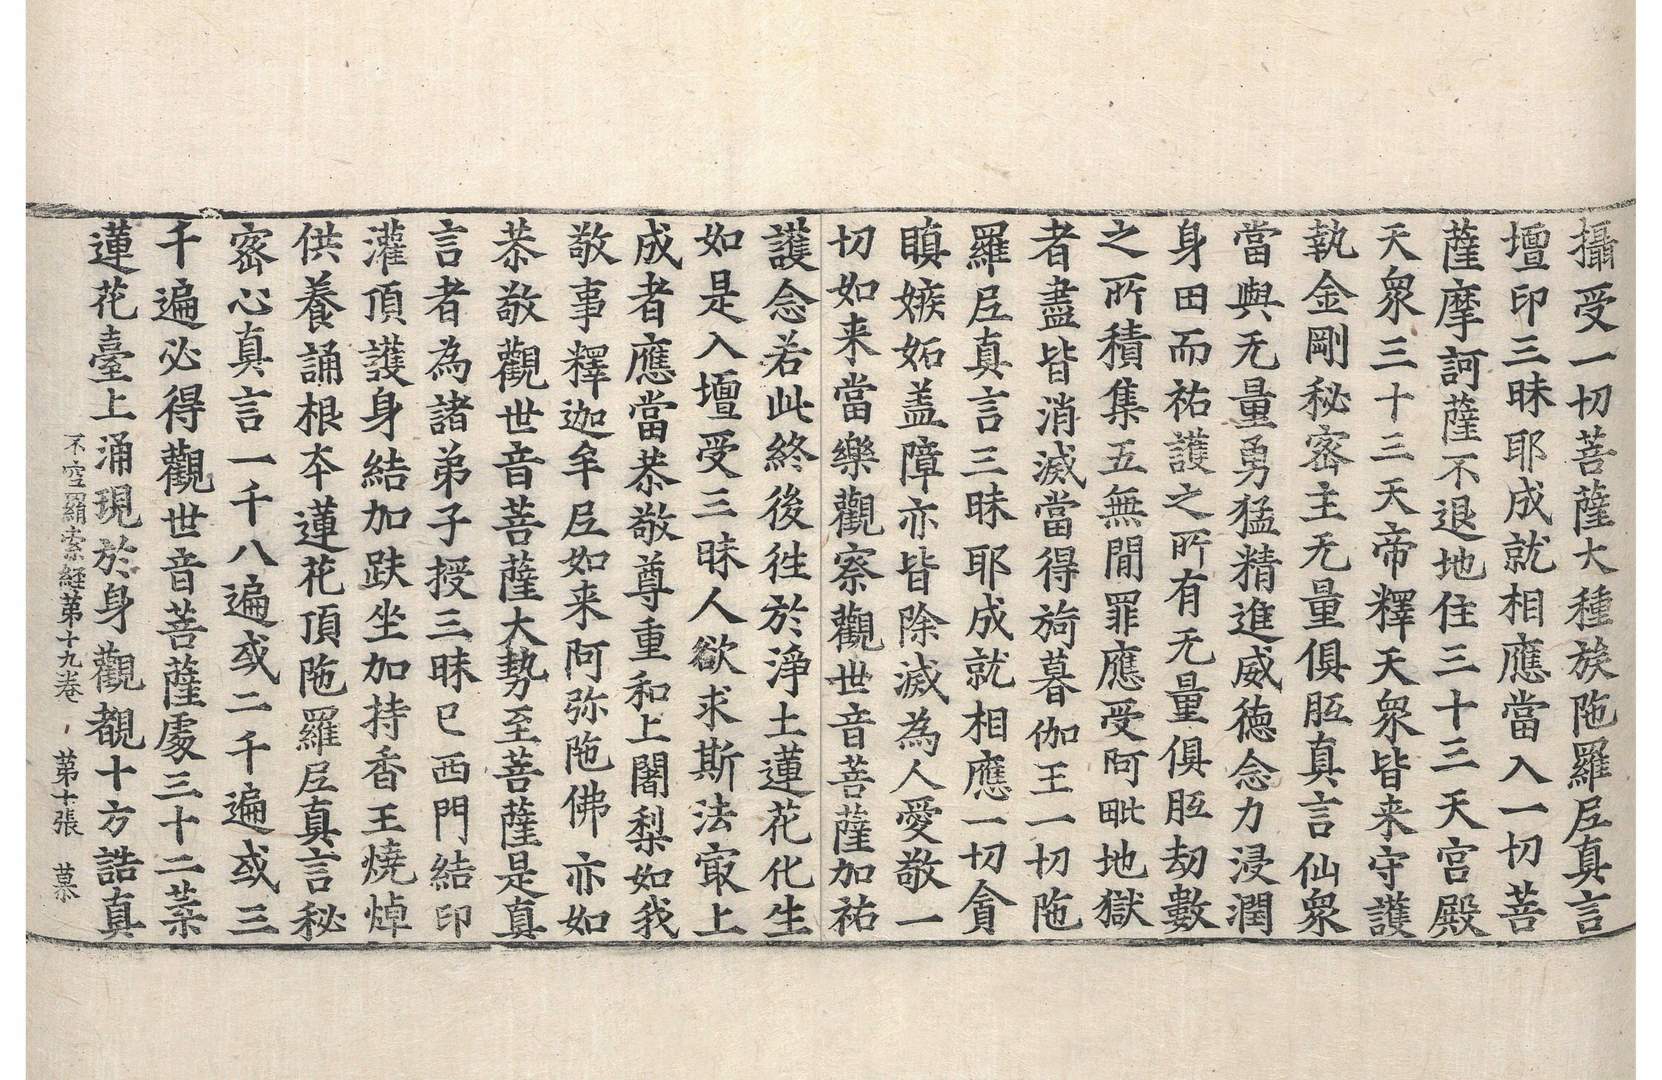 攝受一切菩薩大種族陁羅𡰱真言
壇印三昧耶成就相應當入一切菩
薩摩訶薩不退地住三十三天宮殿
天衆三十三天帝釋天衆皆来守護
執金剛秘密主无量俱胝真言仙衆
當與无量勇猛精進威德念力浸潤
身田而祐護之所有无量俱胝劫數
之所積集五無間罪應受阿毗地獄
者盡皆消滅當得旖暮伽王一切陁
羅𡰱真言三昧耶成就相應一切貪
瞋嫉妬盖障亦皆除滅為人愛敬一
切如来當樂觀察觀世音菩薩加祐
護念若此終後往於淨土蓮花化生
如是入壇受三昧人欲求斯法㝡上
成者應當恭敬尊重和上闍梨如我
敬事釋迦牟𡰱如来阿弥陁佛亦如
恭敬觀世音菩薩大勢至菩薩是真
言者為諸弟子授三昧已西門結印
灌頂護身結加趺坐加持香王燒焯
供養誦根夲蓮花頂陁羅𡰱真言秘
密心真言一千八遍或二千遍或三
千遍必得觀世音菩薩處三十二葉
蓮花臺上涌現於身觀覩十方誥真
不空羂索経苐十九卷 苐十張 慕